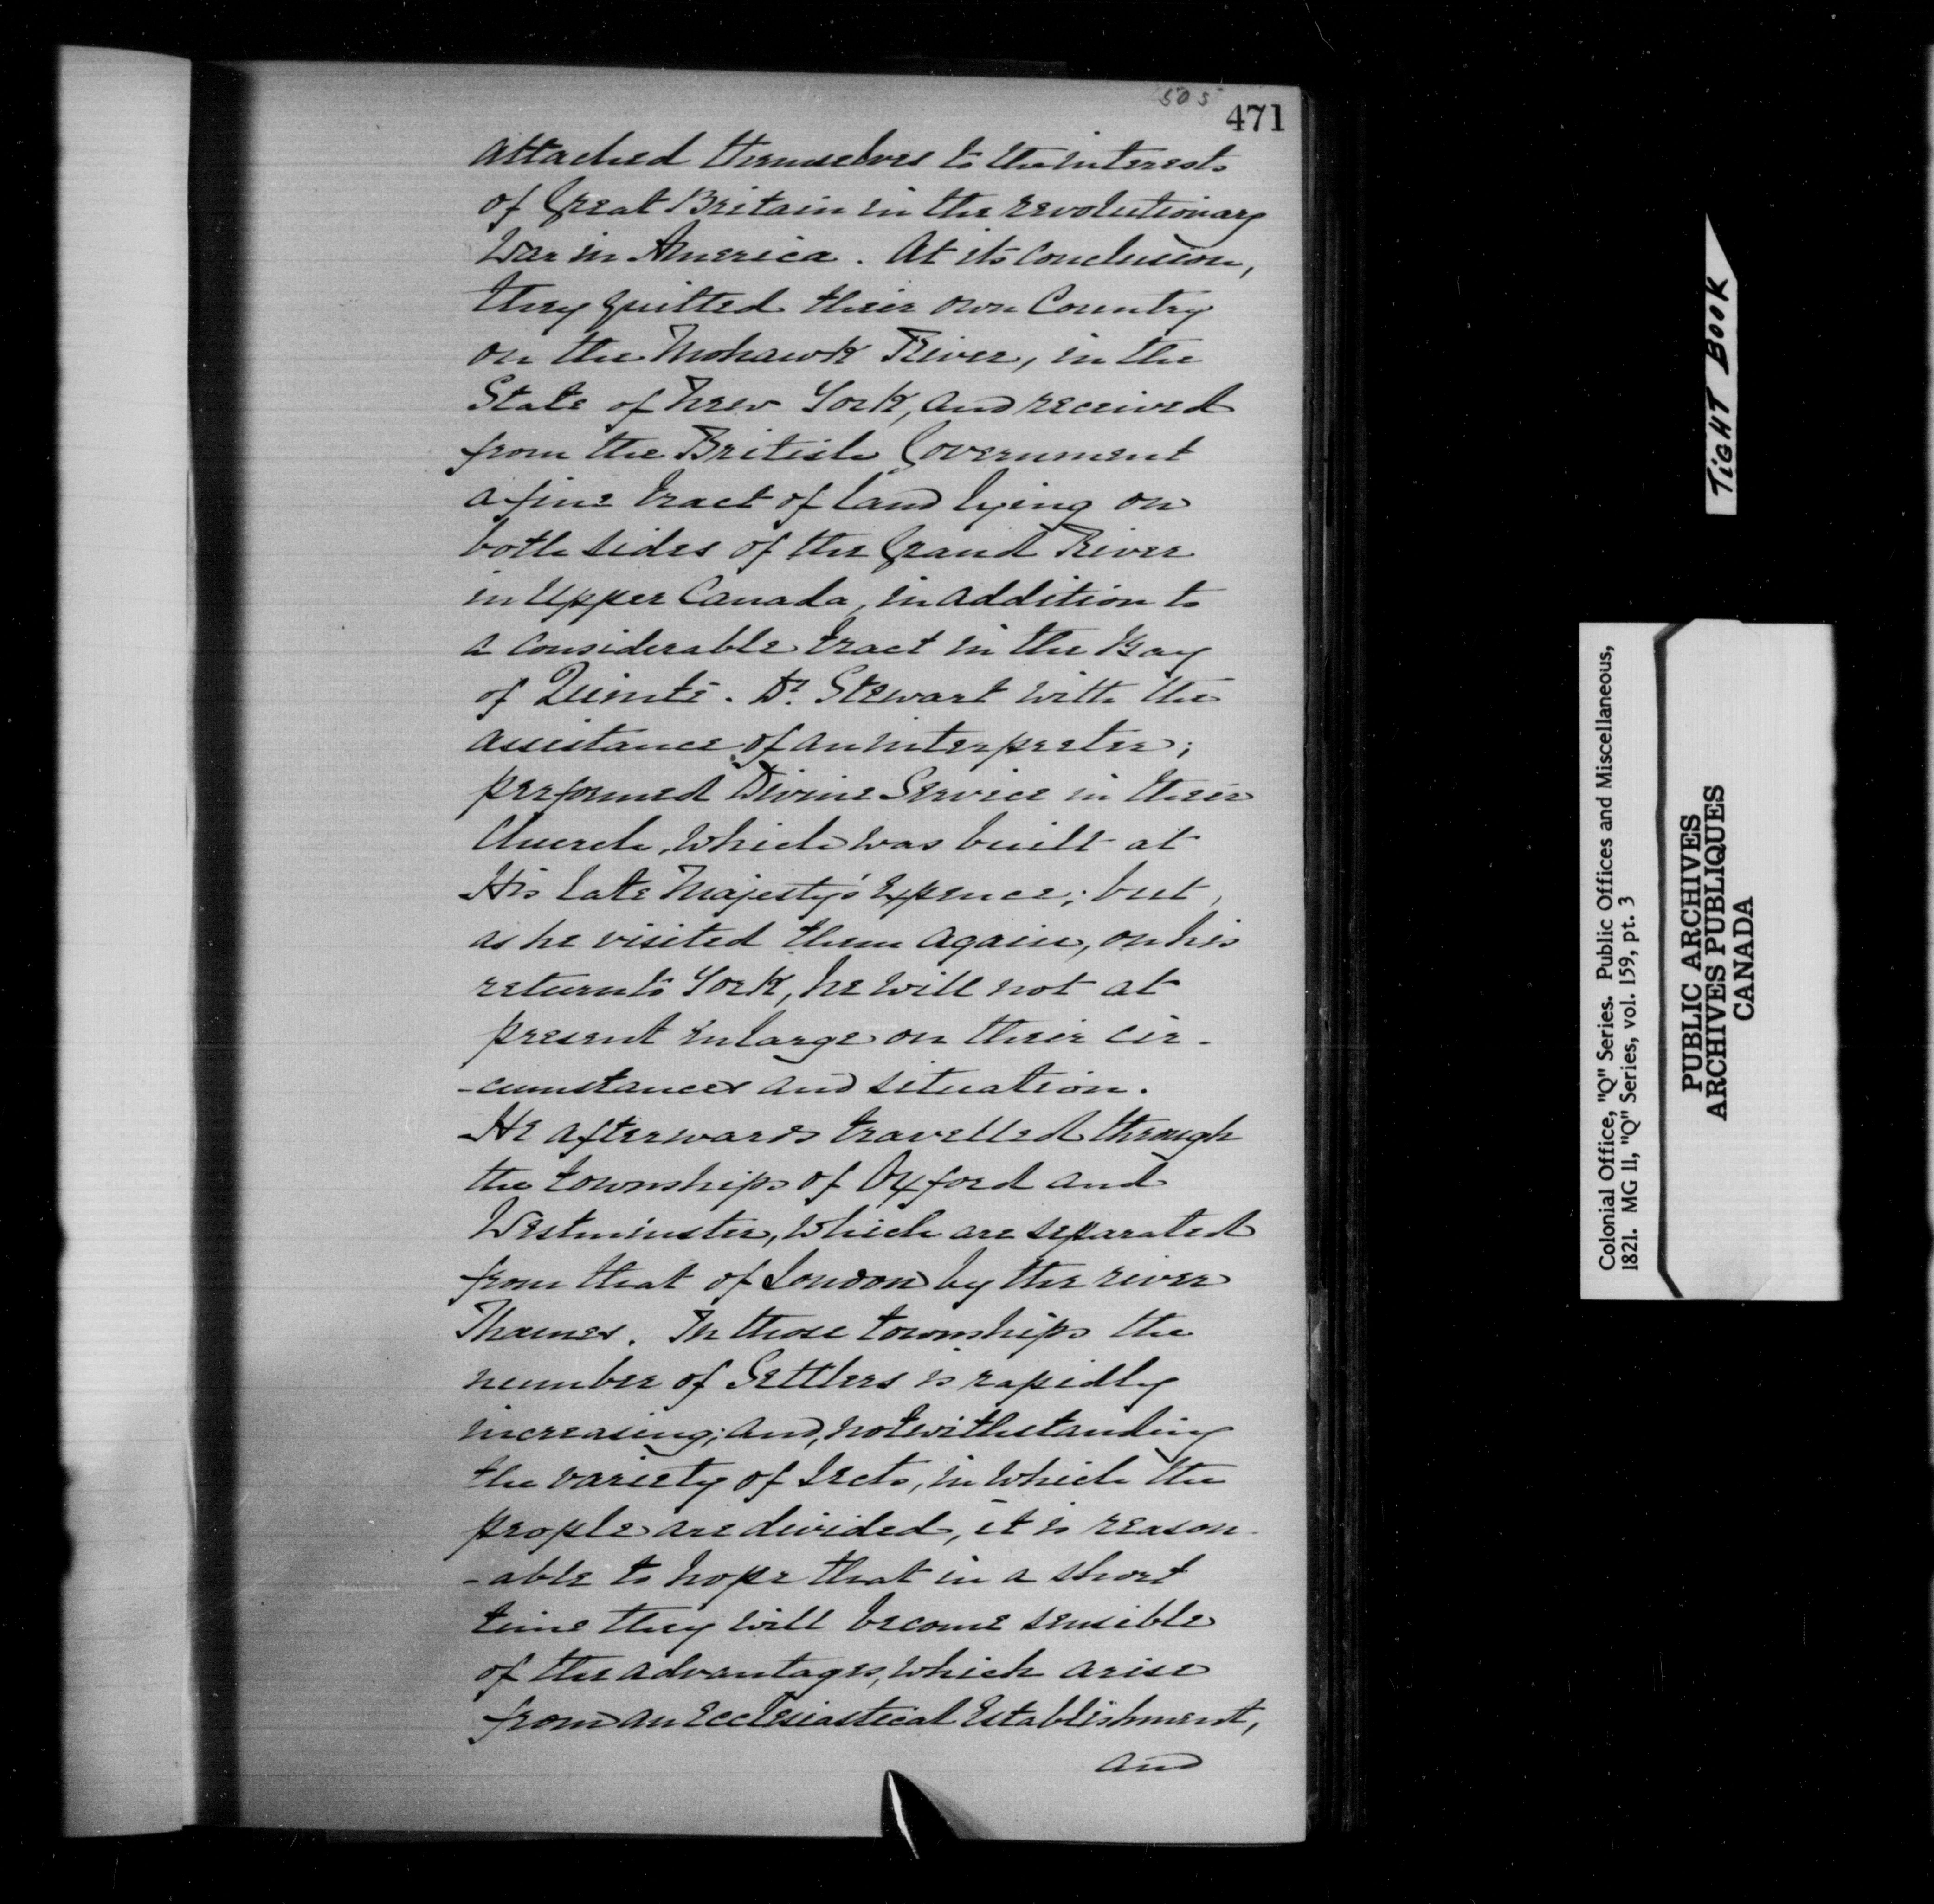 505
471
attached themselves to the interests
of Great Britain in the revolutionary
War in America. At its conclusion,
they quitted their own Country
on the Mohawk River, in the
State of New York, and received
from the British Government
a fine tract of land lying on
both sides of the Grand River
in Upper Canada, in addition to
a considerable tract in the Bay
of Quinté. Dr. Stewart with the
assistance of an interpreter;
performed Divine Service in their
Church, which was built at
His late Majesty's Expence; but,
as he visited them again, on his
return to York, he will not at
present enlarge on their cir-
-cumstances and situation.
He afterwards travelled through
the townships of Oxford and
Westminster, which are separated
from that of London by the river
Thames. In those townships the
number of Settlers is rapidly
increasing; and, notwithstanding
the variety of Sects, in which the
people are divided, it is reason-
-able to hope that in a short
time they will become sensible
of the advantages, which arise
from an Ecclesiastical Establishment,
and
TIGHT BOOK
Colonial Office, "Q" Series. Public Offices and Miscellaneous,
1821. MG 11, "Q" Series, vol. 159, pt. 3
PUBLIC ARCHIVES
ARCHIVES PUBLIQUES
CANADA